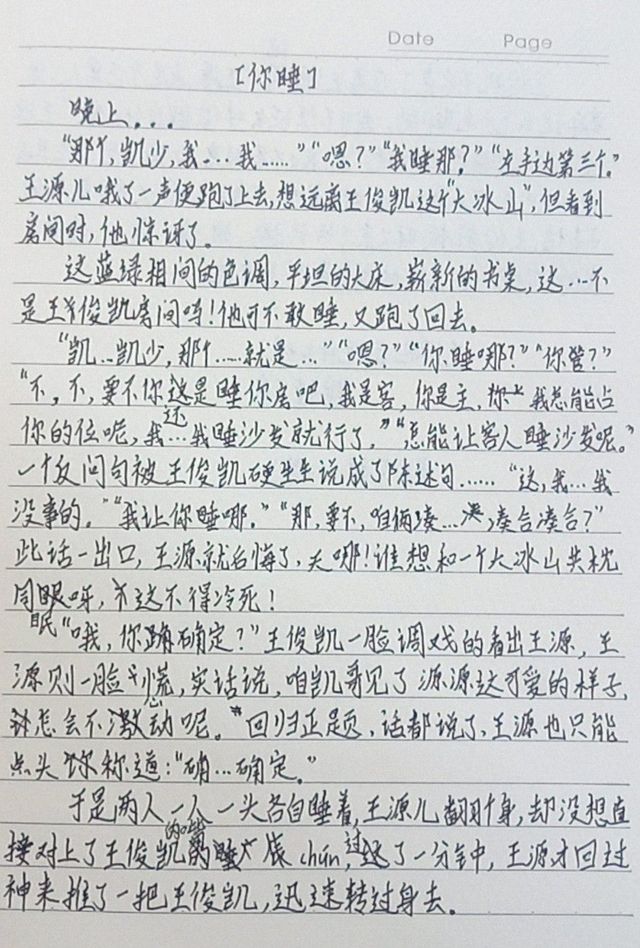 Date Page
「你睡」
晚上...
“那个,凯少,我...我......”“嗯?”“我睡那?”“左手边第三个。”
王源儿哦了一声便跑了上去,想远离王俊凯这个“大冰山”,但看到
房间时,他惊讶了。
这蓝绿相间的色调,平坦的大床,崭新的书桌,这...不
是王俊凯房间吗!他可不敢睡,又跑了回去。
“凯...凯少,那个......就是...”“嗯?”“你睡哪?”“你管?”
“不,不,要不你还是睡你房吧,我是客,你是主,我怎能占
你的位呢,我...我睡沙发就行了,”“怎能让客人睡沙发呢。”
一个反问句被王俊凯硬生生说成了陈述句......“这,我...我
没事的。”“我让你睡哪。”“那,要不,咱俩凑...,凑合凑合?”
此话一出口,王源就后悔了,天哪!谁想和一个大冰山共枕
同眠呀,这不得冷死!
“哦,你确定?”王俊凯一脸调戏的看出王源,王
源则一脸慌,实话说,咱凯哥见了源源这可爱的样子,
怎会不激动呢。*回归正题,话都说了,王源也只能
点头称道:“确...确定。”
于是两人一人一头各自睡着,王源儿翻时身,却没想直
接对上了王俊凯的嘴chún,过了一分钟,王源才回过
神来推了一把王俊凯,迅速转过身去。